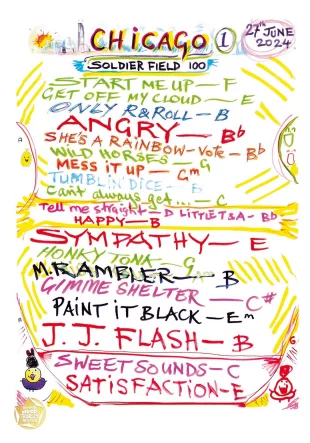 CHICAGO 1
27TH JUNE 2024
SOLDIER FIELD 100
START ME UP — F
GET OFF MY CLOUD — E
ONLY R&ROLL — B
ANGRY — Bb
SHE'S A RAINBOW - Vote - Bb
WILD HORSES — G
MESS IT UP — Cm
TUMBLIN' DICE — B
Can't always get... — C
Tell me straight — D LITTLE T&A — Bb
HAPPY — B
SYMPATHY — E
HONKY TONK — G
M. RAMBLER — B
GIMME SHELTER — C#
PAINT IT BLACK — Em
J.J. FLASH — B
SWEET SOUNDS — C
SATISFACTION — E